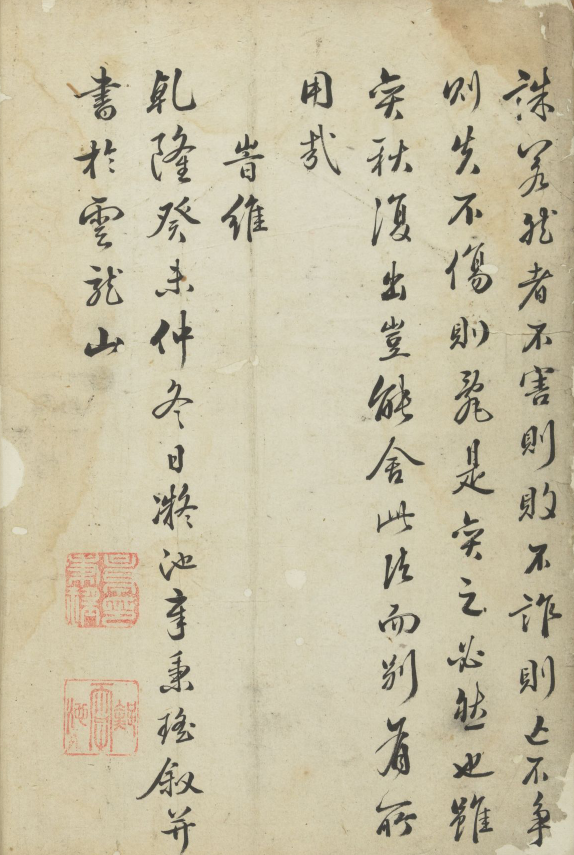 誅若然者不害則敗不詐則亡不爭
则失不傷則亂是奕之必然也雖
奕秋復出豈能舍此法而別有所
用哉
旹維
乾隆癸未仲冬日凝池秉瑤叙并
書於雲龍山